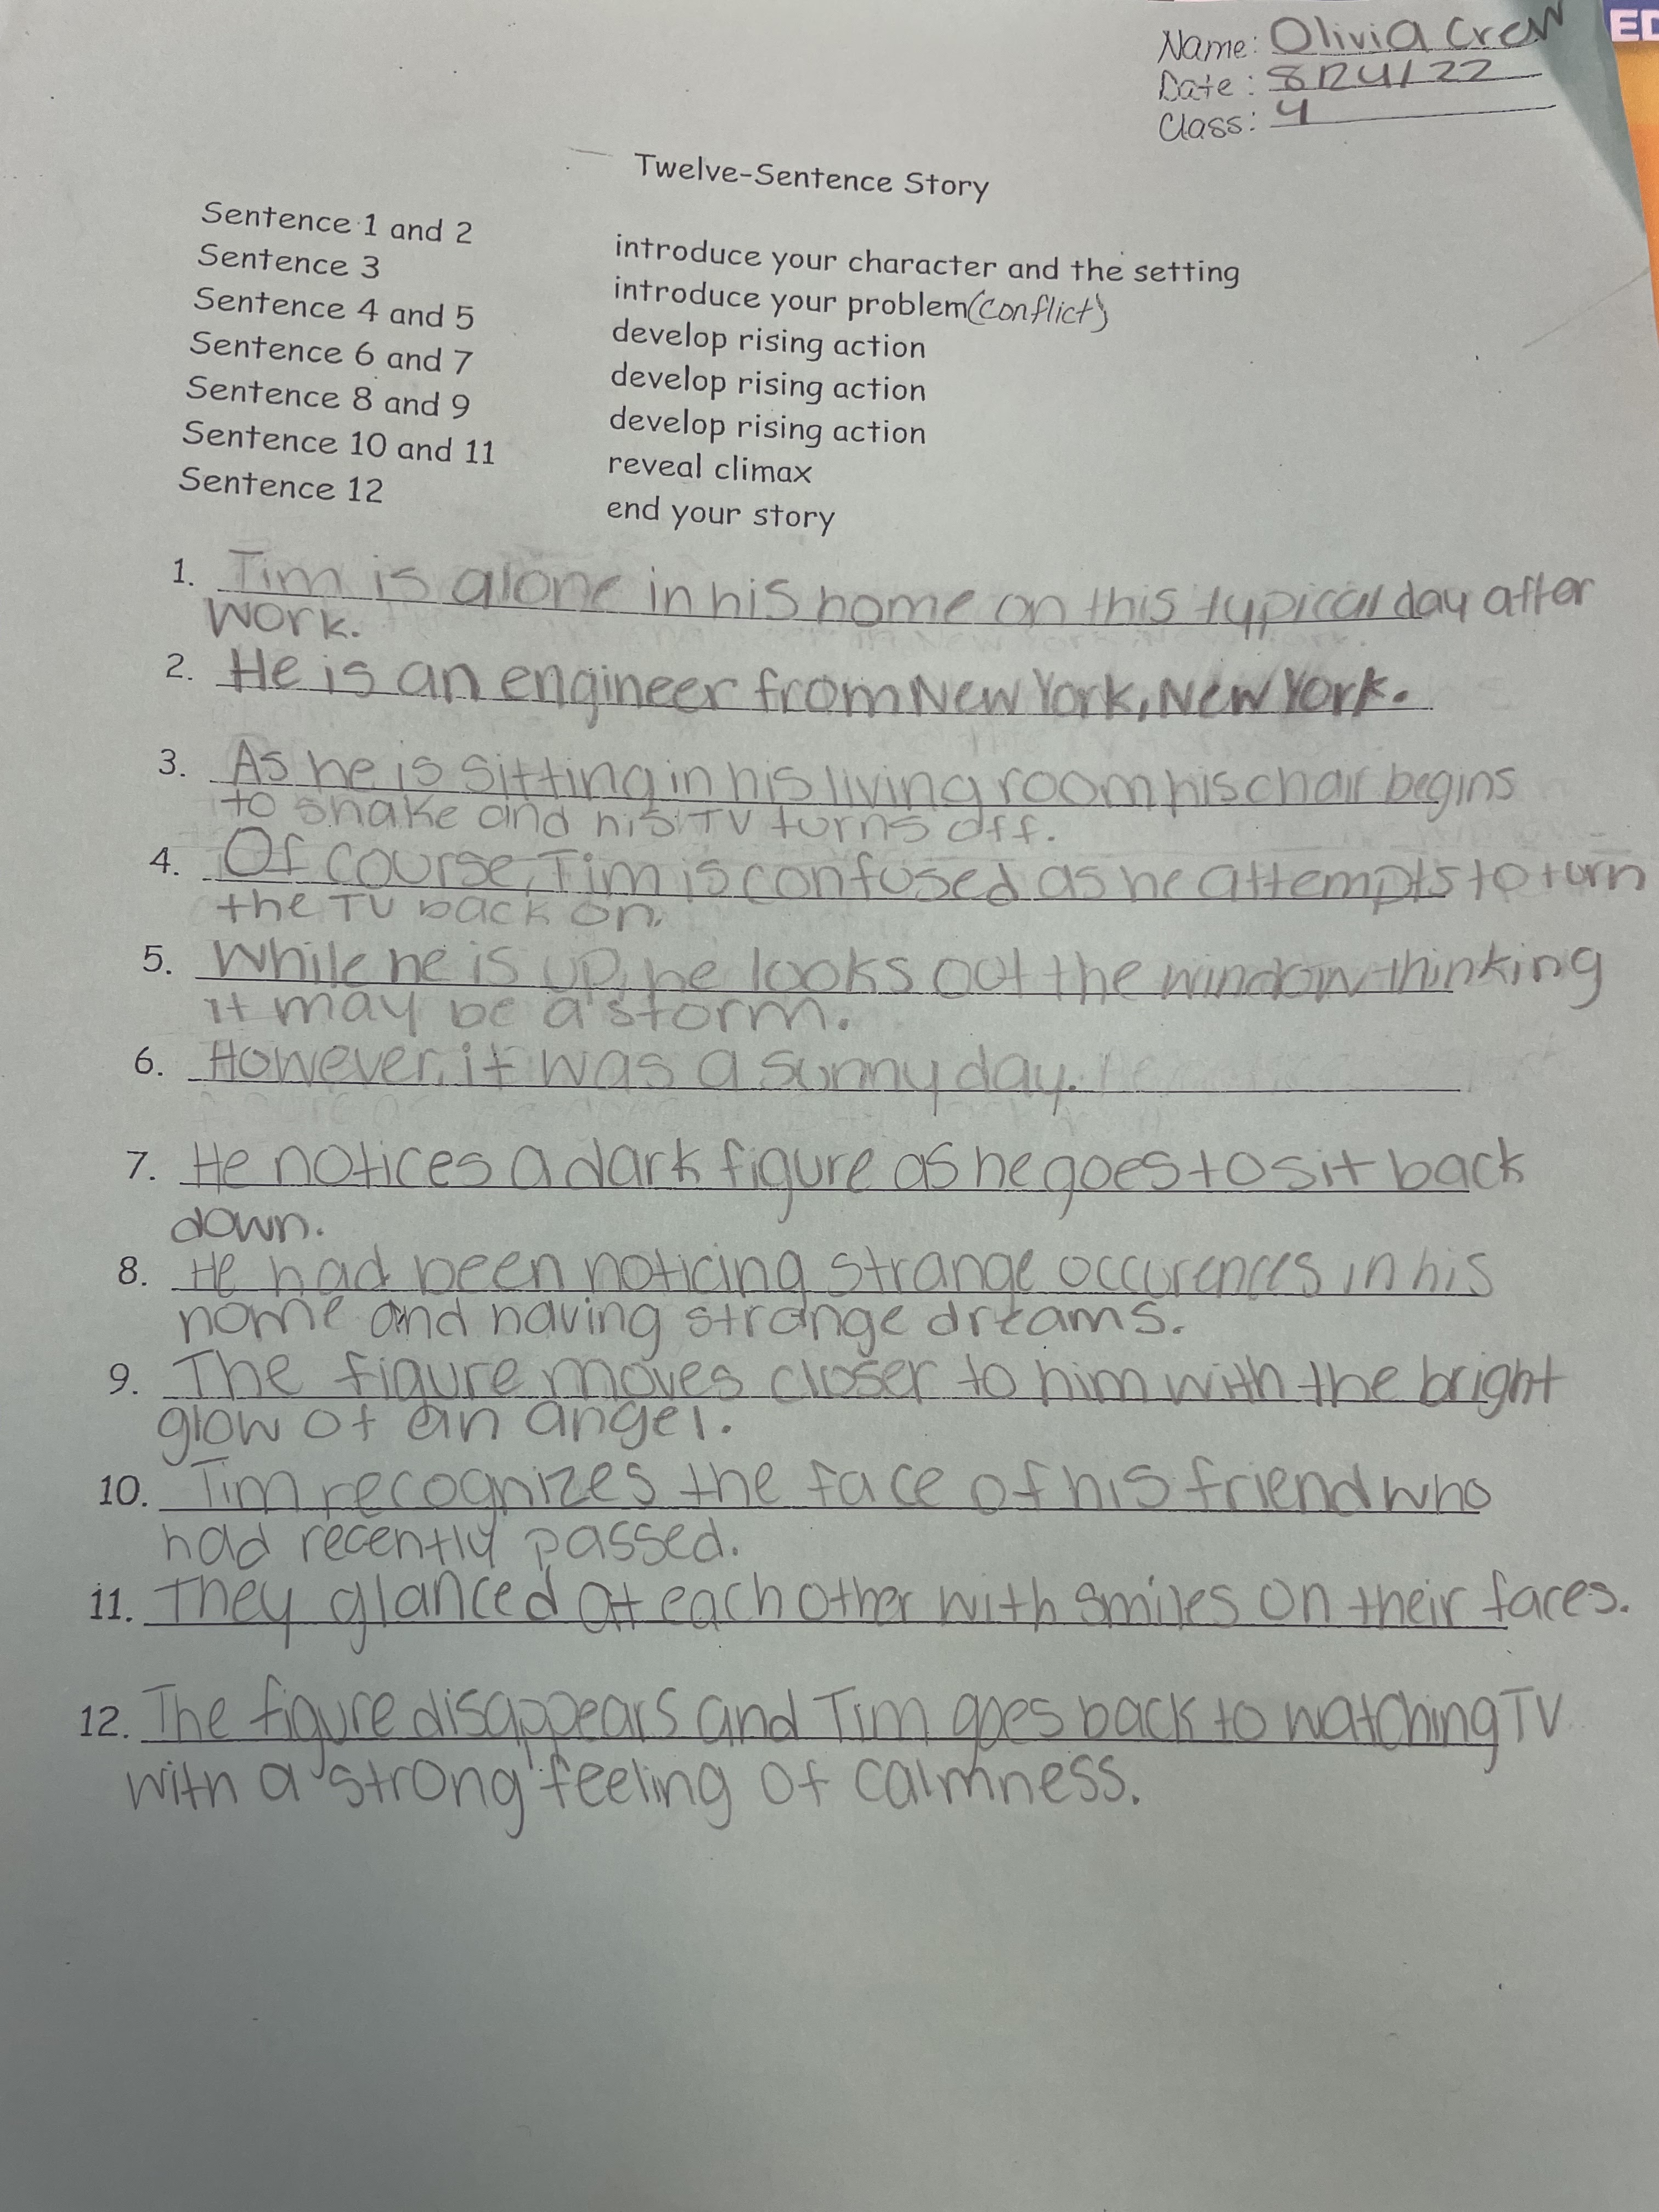 ED
Name: Olivia Crew
Date: 8/24/22
Class: 4
Twelve-Sentence Story
Sentence 1 and 2 introduce your character and the setting
Sentence 3 introduce your problem (conflict)
Sentence 4 and 5 develop rising action
Sentence 6 and 7 develop rising action
Sentence 8 and 9 develop rising action
Sentence 10 and 11 reveal climax
Sentence 12 end your story
1. Tim is alone in his home on this typical day after
work.
2. He is an engineer from New York, New York.
3. As he is sitting in his living room his chair begins
to shake and his TV turns off.
4. Of course, Tim is confused as he attempts to turn
the TV back on.
5. While he is up, he looks out the window thinking
it may be a storm.
6. However, it was a sunny day.
7. He notices a dark figure as he goes to sit back
down.
8. He had been noticing strange occurences in his
home and having strange dreams.
9. The figure moves closer to him with the bright
glow of an angel.
10. Tim recognizes the face of his friend who
had recently passed.
11. They glanced at each other with smiles on their faces.
12. The figure disappears and Tim goes back to watching TV
with a strong feeling of calmness.